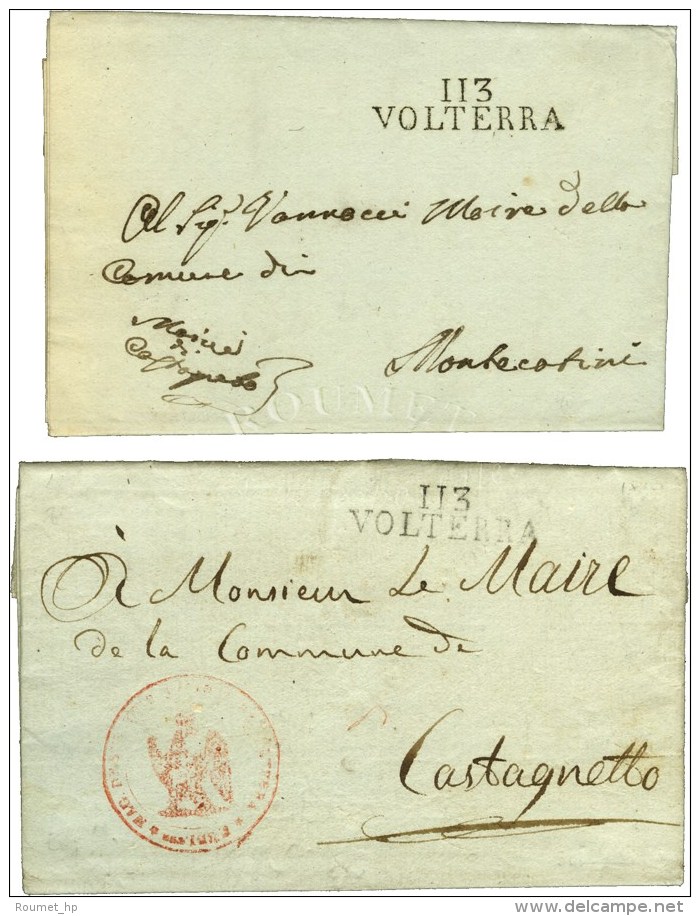 113
VOLTERRA
Al Sigr. Vannocci Maire della
Comune di
Montecatini
Mairie
di
Castagneto
ROUMET
113
VOLTERRA
À Monsieur Le Maire
de la Commune de
Castagnetto
Roumet_hp
delcampe.net